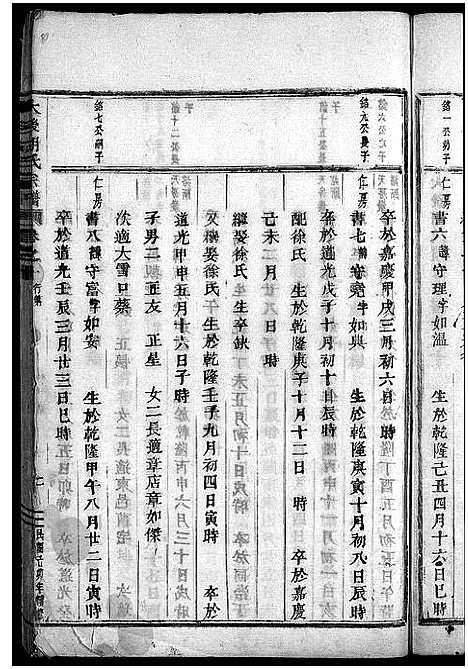 銘一公弟子
仁房
書六諱守理字如溫 生於乾隆己丑四月十六日巳時
卒於嘉慶甲戌三月初六日 時
銘九公長子
仁房
書七諱守堯字如典 生於乾隆庚寅十月初八日辰時
卒於道光戊子十月初十日辰時
配徐氏 生於乾隆庚子十月十二日 時 卒於嘉慶
己未二月廿八日午時
繼娶徐氏 生卒缺
又繼娶徐氏 生於乾隆壬子九月初四日寅時 卒於
道光甲申五月十六日子時
子男二 正友 正星 女二長適章店章如傑
次適大雪旦蔡
銘七公嗣子
仁房
書八諱守富字如安 生於乾隆甲午八月廿二日寅時
卒於道光壬辰三月廿三日巳時
胡氏宗譜